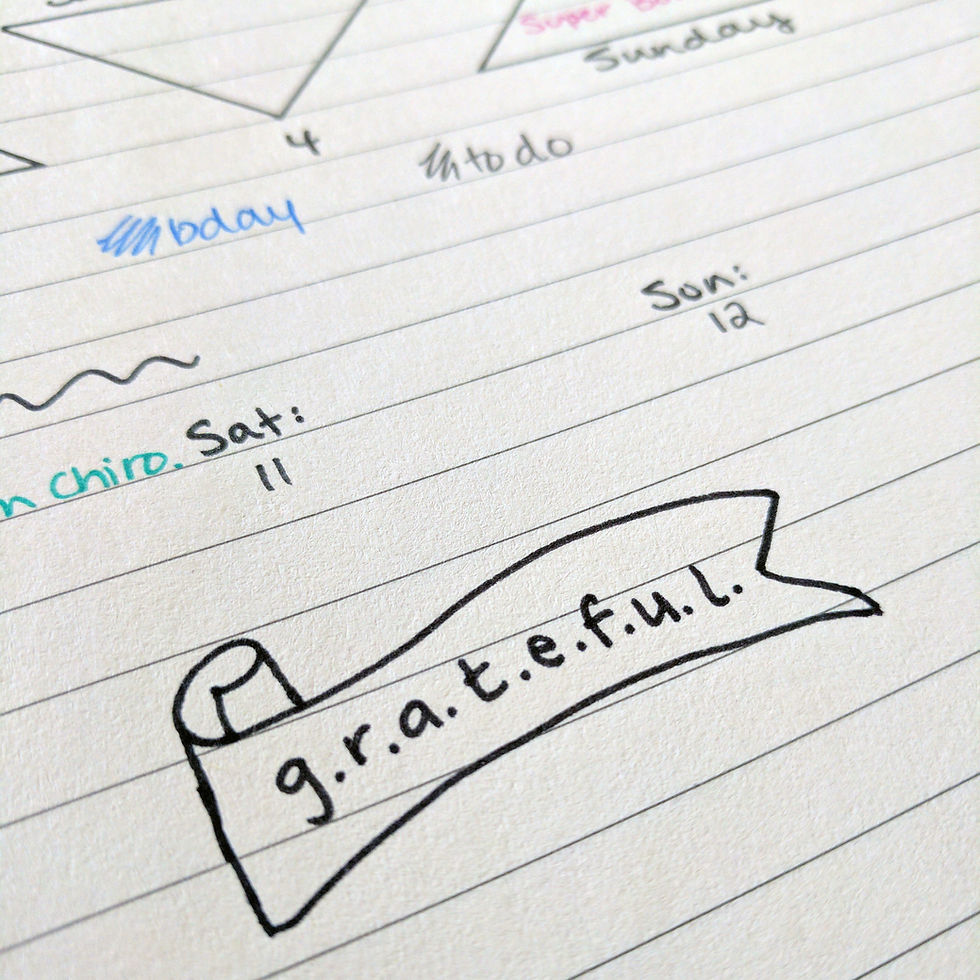 Super
Sunday
4
to do
bday
Sun:
12
Sat:
11
n chiro.
g.r.a.t.e.f.u.l.